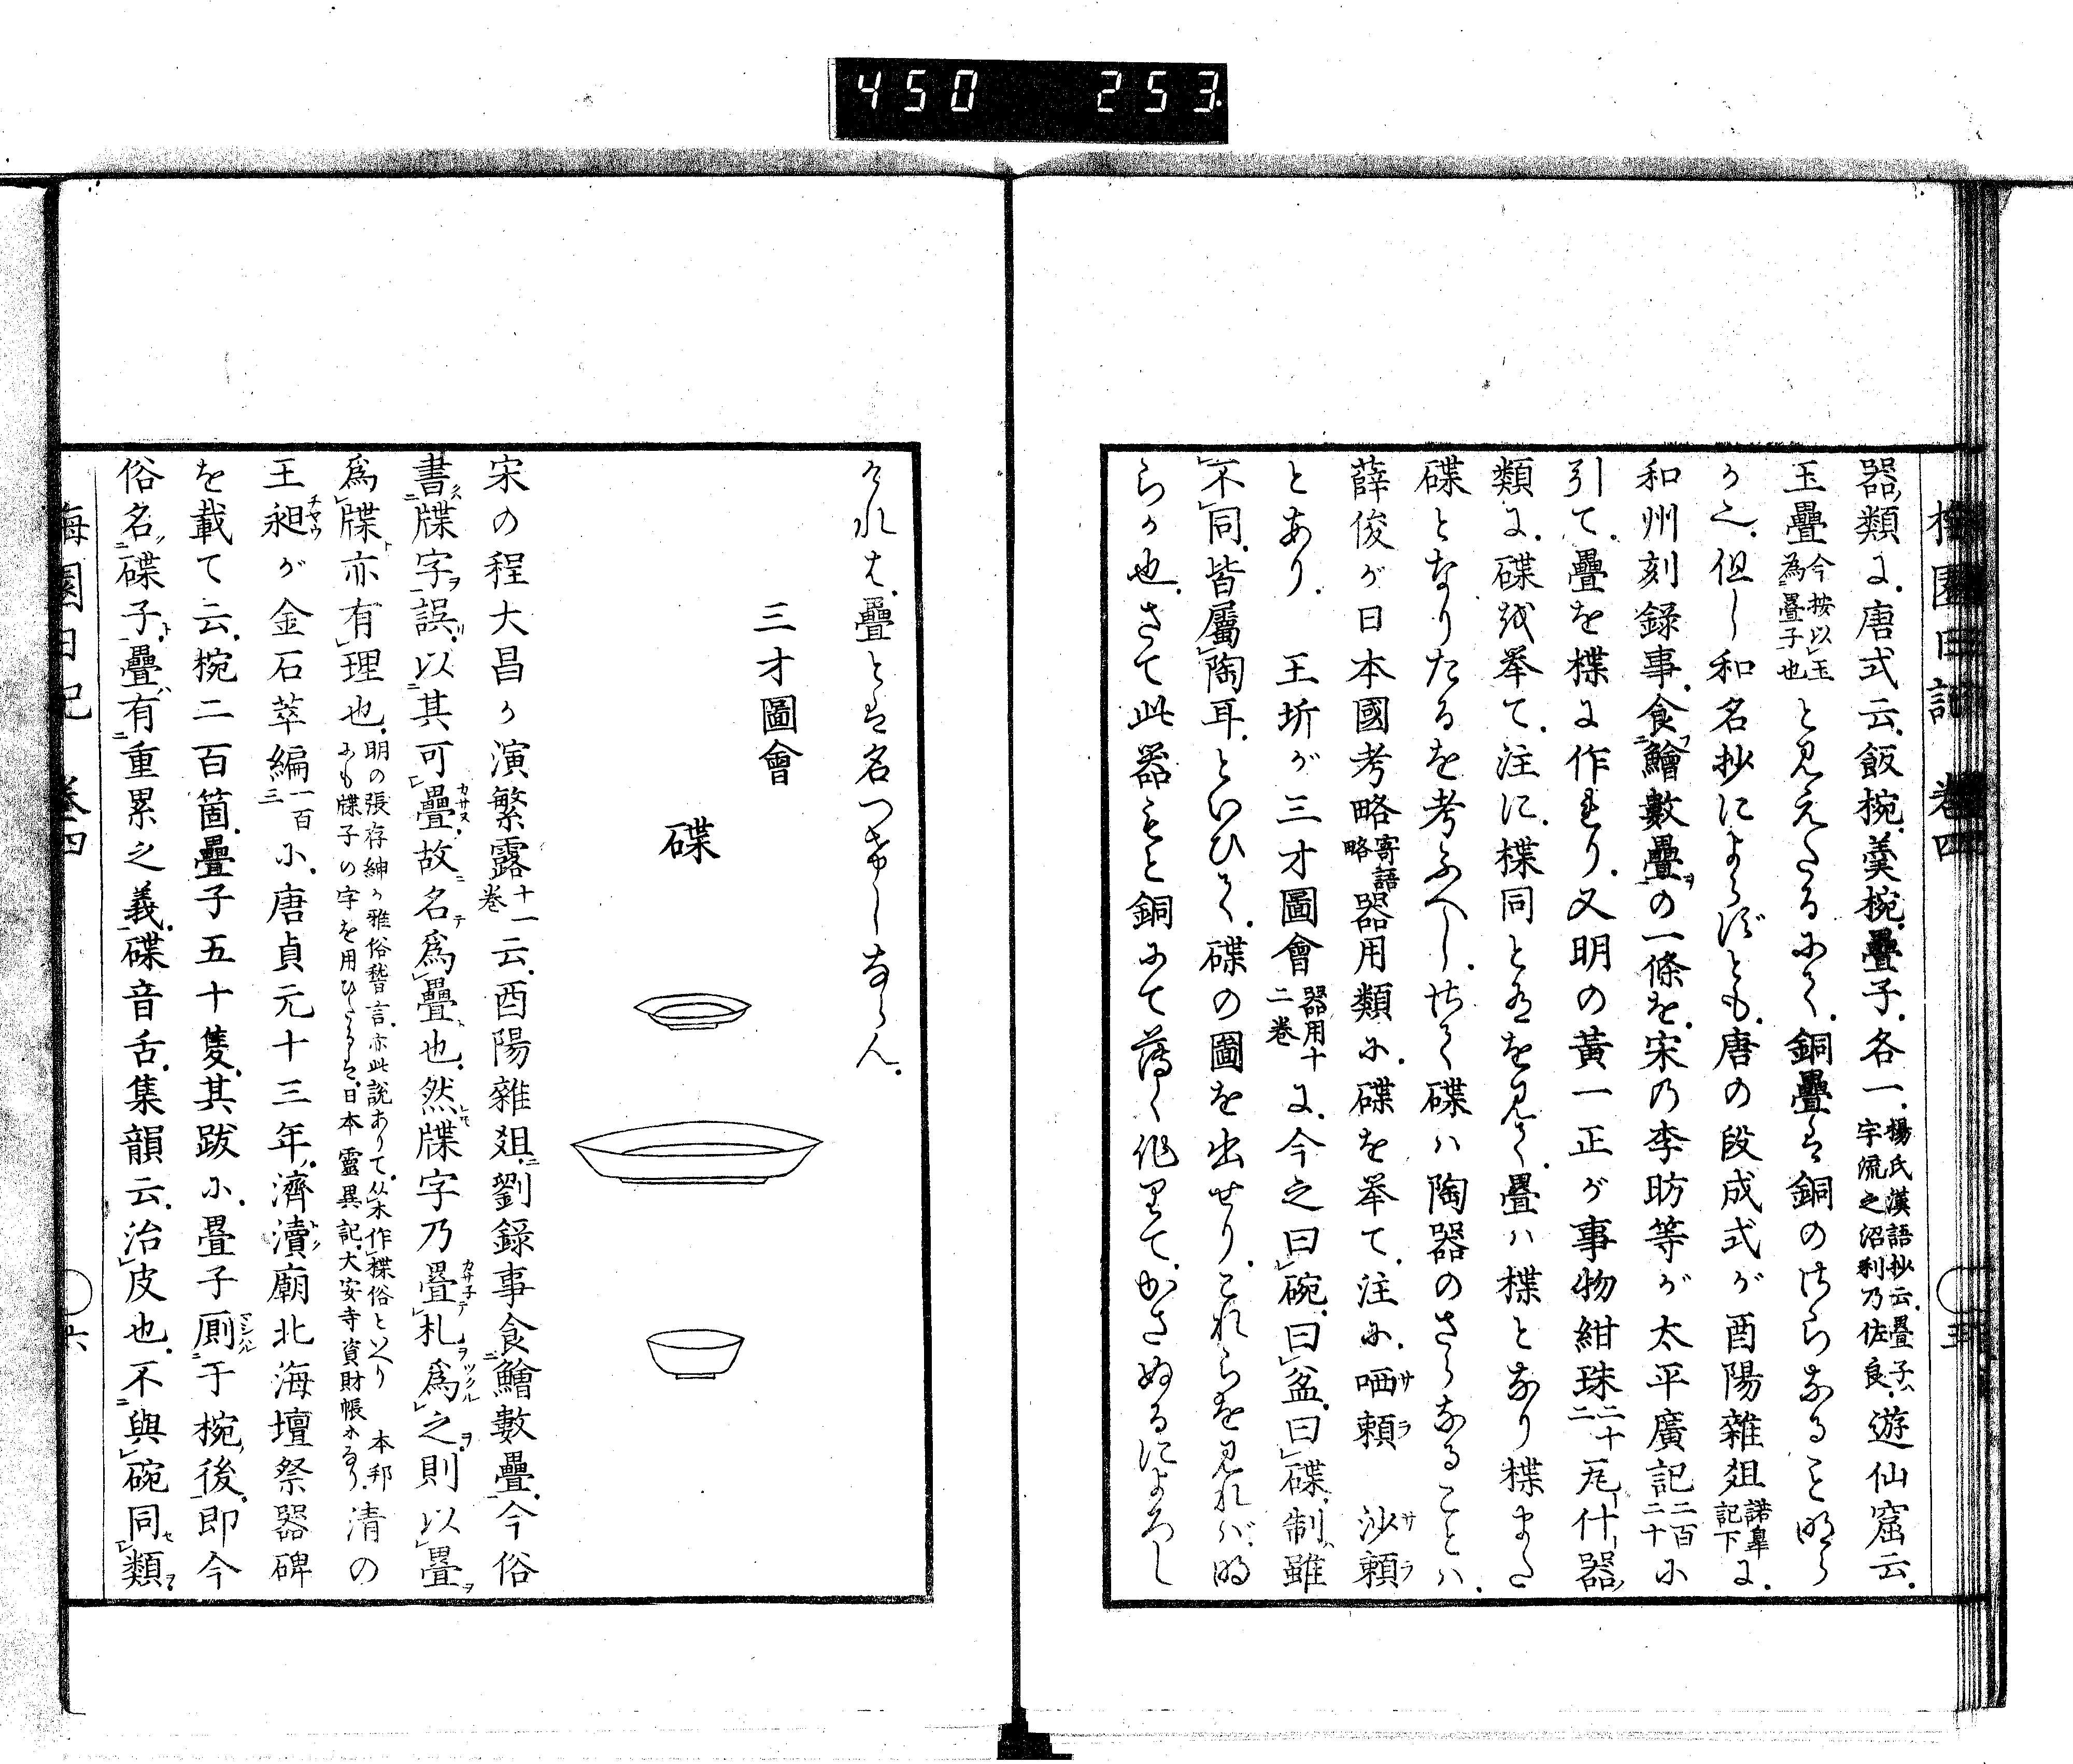 450 253
梅園日記 卷四
五
器類に唐式云飯椀羹椀疊子各一楊氏漢語抄云疊子ハ宇流之沼利乃佐良遊仙窟云
玉疊今按以玉為疊子也と見えたるにて銅疊は銅のさらなること明ら
か也但し和名抄によらずとも唐の段成式が酉陽雜爼諾皐記下に
和州刻録事食鱠數疊の一條を宋乃李昉等が太平廣記二百二十に
引て疊を楪に作れり又明の黃一正が事物紺珠二十二瓦什器
類に碟を举て注に楪同とあるを見て疊ハ楪となり楪また
碟となりたるを考ふへしさて碟ハ陶器のさらなることハ
薛俊が日本國考略寄語略器用類に碟を举て注に哂頼サラ 沙頼サラ
とあり 王圻が三才圖會器用十二卷に今之曰碗曰盆曰碟制雖
不同皆屬陶耳といひて碟の圖を出せりこれらを見れば明
らか也さて此器もと銅にて薄く作りてかさぬるによろし
けれは疊とは名つけしならん
三才圖會
碟
宋の程大昌か演繁露十一卷云酉陽雜爼劉錄事食鱠數疊今俗
書牒字誤以其可疊故名爲疊也然牒字乃疊札爲之則以疊
爲牒亦有理也明の張存紳か雅俗稽言亦此説ありて从木作楪俗といへり 本邦にも牒子の字を用ひたるは日本靈異記大安寺資財帳にあり清の
王昶が金石萃編一百三に唐貞元十三年濟瀆廟北海壇祭器碑
を載て云椀二百箇疊子五十隻其跋に疊子厠于椀後即今
俗名碟子疊有重累之義碟音舌集韻云治皮也不與碗同類
梅園日記 卷四
六